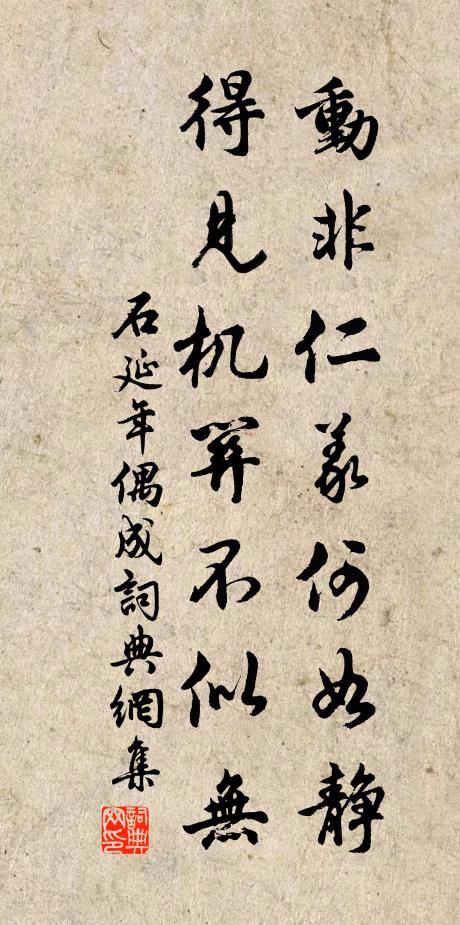 動非仁義何如静
得見机關不似無
石延年偶成詞典網集
詞典网印